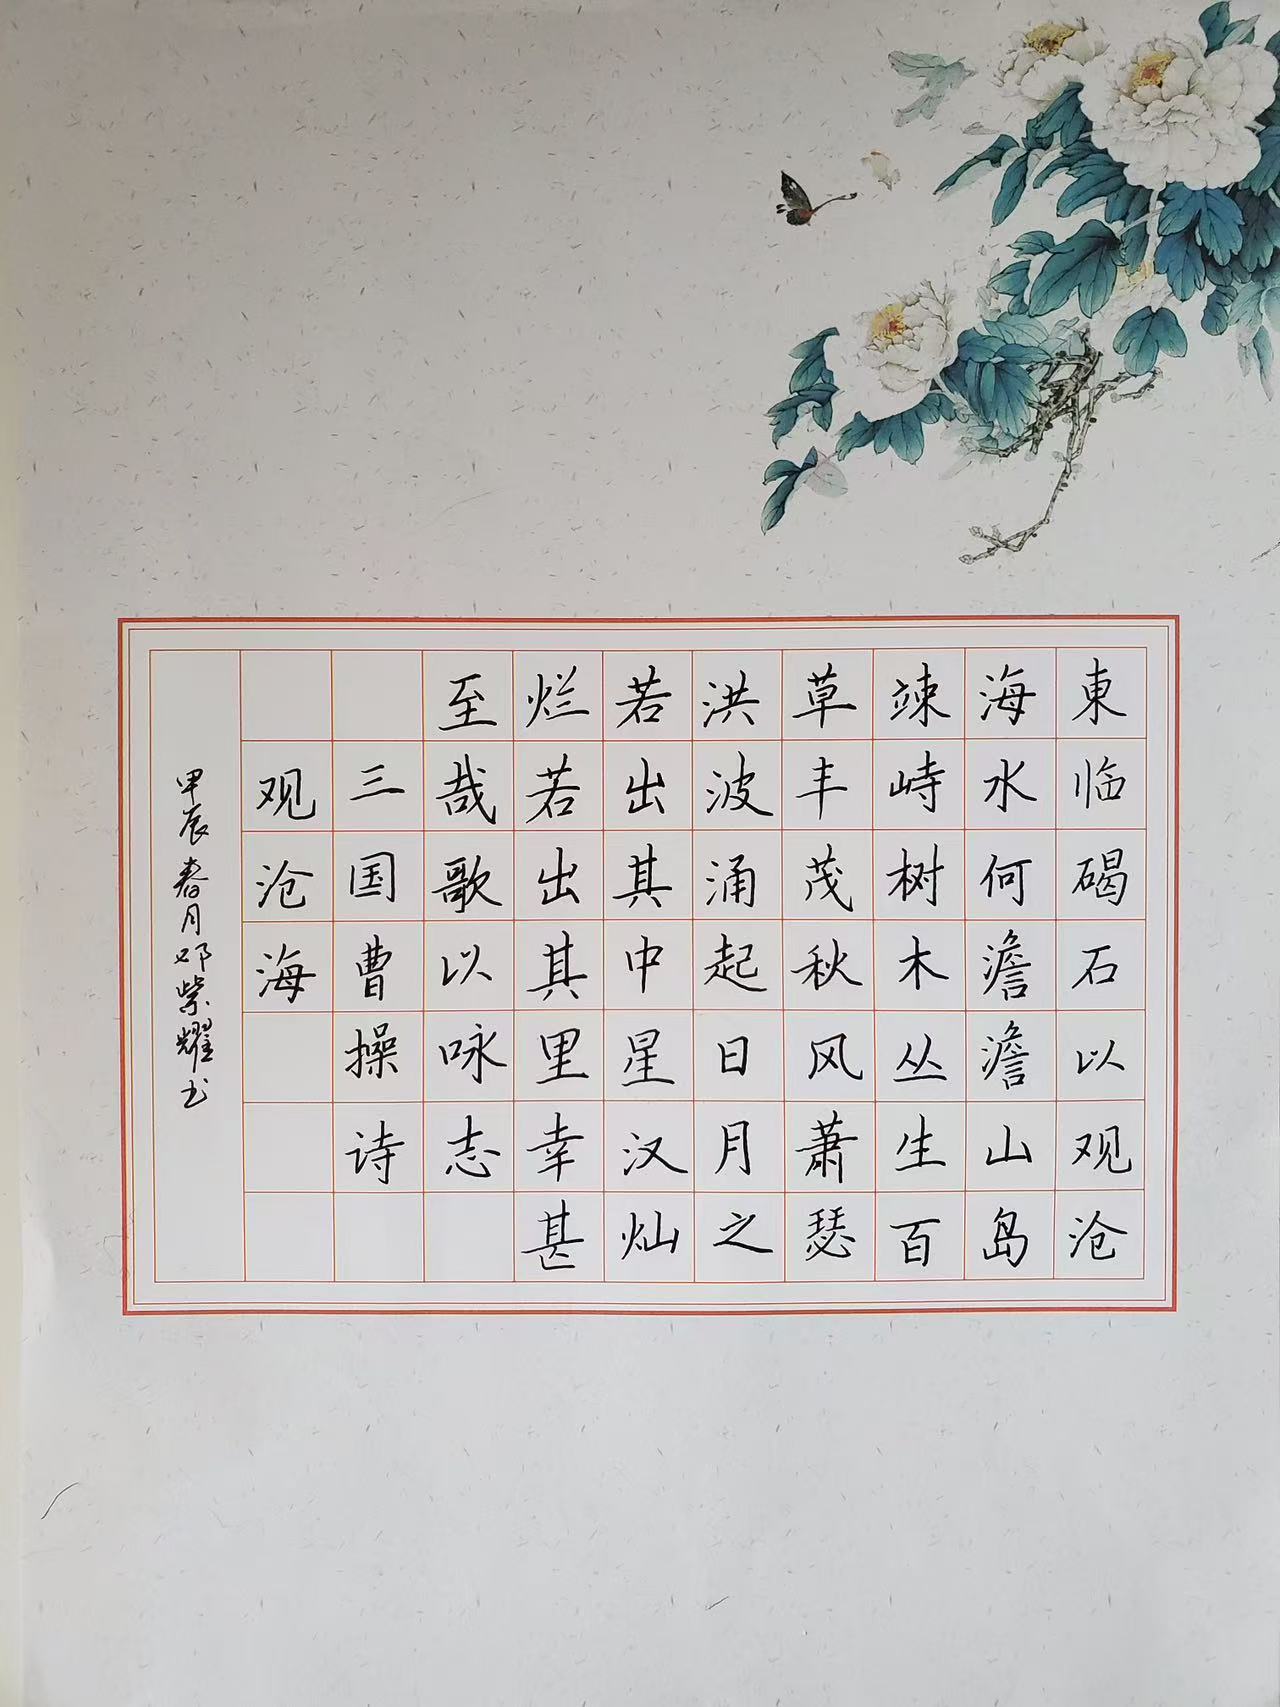 東临碣石以观沧
海水何澹澹山岛
竦峙树木丛生百
草丰茂秋风萧瑟
洪波涌起日月之
若出其中星汉灿
烂若出其里幸甚
至哉歌以咏志
三国曹操诗
观沧海
甲辰春月邓紫耀书